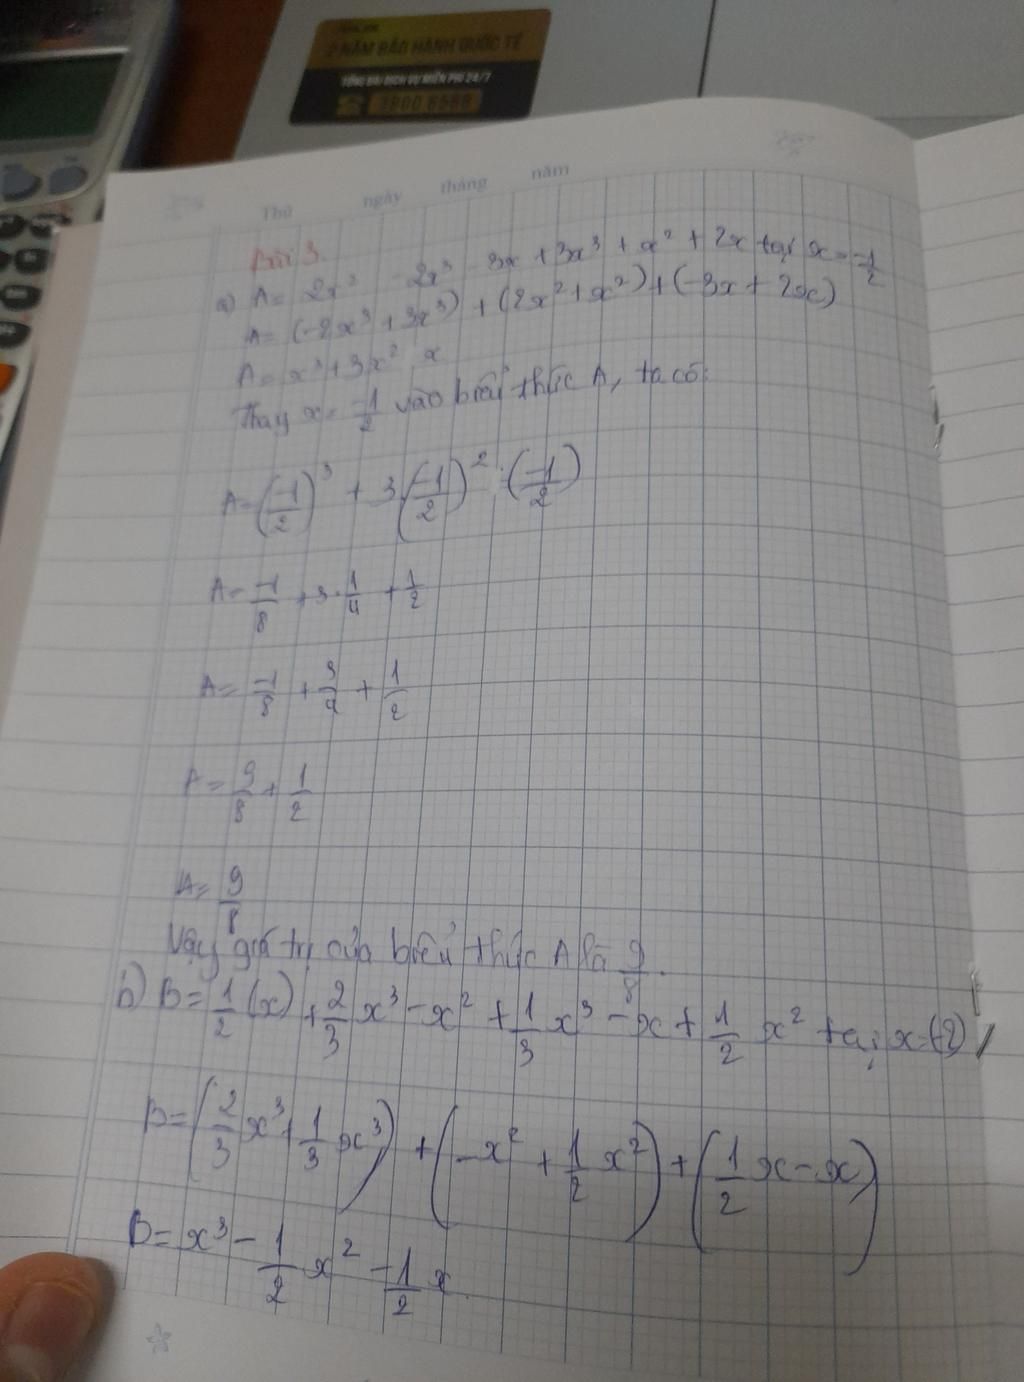 2 NĂM BẢO HÀNH QUỐC TẾ
TỔNG ĐÀI DỊCH VỤ MIỄN PHÍ 24/7
1800 6588
Thứ ngày tháng năm
Bài 3
a) A = 2x² - 2x³ - 3x + 3x³ + x² + 2x tại x = -1/2
A = (-2x³ + 3x³) + (2x² + x²) + (-3x + 2x)
A = x³ + 3x² x
Thay x = -1/2 vào biểu thức A, ta có:
A = (-1/2)³ + 3(-1/2)² . (-1/2)
A = -1/8 + 3 . 1/4 + 1/2
A = -1/8 + 3/4 + 1/2
A = 9/8 + 1/2
A = 9/8
Vậy giá trị của biểu thức A là 9/8.
b) B = 1/2 (x) + 2/3 x³ - x² + 1/3 x³ - x + 1/2 x² tại x = (-2)
B = (2/3 x³ + 1/3 x³) + (-x² + 1/2 x²) + (1/2 x - x)
B = x³ - 1/2 x² - 1/2 x